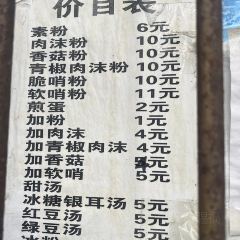 价目表
素粉 6元
肉沫粉 10元
香菇粉 10元
青椒肉沫粉 10元
脆哨粉 10元
软哨粉 11元
煎蛋 2元
加粉 1元
加肉沫 4元
加青椒肉沫 4元
加香菇 元
加软哨 5元
甜汤
冰糖银耳汤 5元
红豆汤 5元
绿豆汤 5元
冰粉